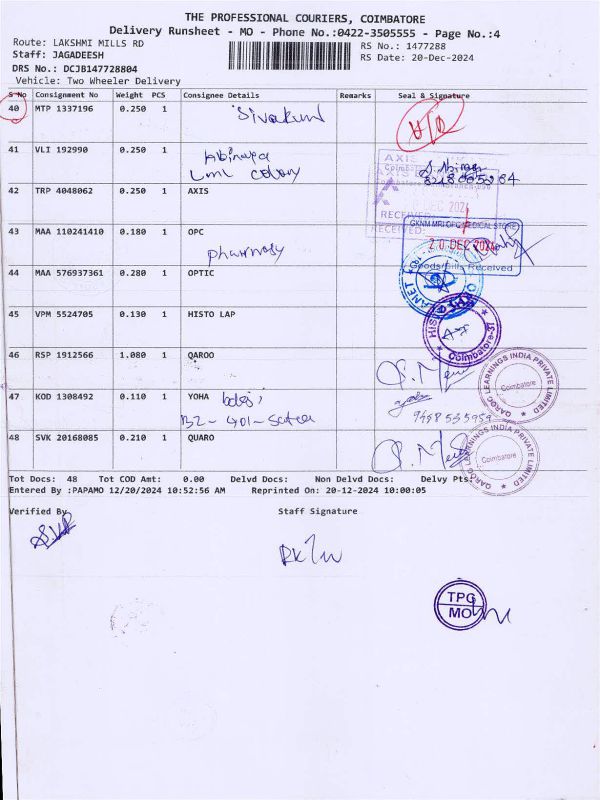 THE PROFESSIONAL COURIERS, COIMBATORE
Delivery Runsheet - MO - Phone No.:0422-3505555 - Page No.:4
Route: LAKSHMI MILLS RD
RS No.: 1477288
Staff: JAGADEESH
RS Date: 20-Dec-2024
DRS No.: DCJB147728804
Vehicle: Two Wheeler Delivery
S No Consignment No Weight PCS Consignee Details Remarks Seal & Signature
40 MTP 1337196 0.250 1 Sivakum
41 VLI 192990 0.250 1
Abinaya
LML colony
42 TRP 4048062 0.250 1 AXIS
AXIS
RECEIVED
43 MAA 110241410 0.180 1 OPC
pharmacy
GKNM MRI OPC MEDICAL STORE
20 DEC 2024
Goods/Bills Received
44 MAA 576937361 0.280 1 OPTIC
45 VPM 5524705 0.130 1 HISTO LAP
HISTO
Coimbatore-37
46 RSP 1912566 1.080 1 QAROO
QAROO LEARNINGS INDIA PRIVATE LIMITED
Coimbatore
47 KOD 1308492 0.110 1 YOHA
B2-401-
9498535959
48 SVK 20168085 0.210 1 QUARO
QAROO LEARNINGS INDIA PRIVATE LIMITED
Coimbatore
Tot Docs: 48 Tot COD Amt: 0.00 Delvd Docs: Non Delvd Docs: Delvy Pts:
Entered By :PAPAMO 12/20/2024 10:52:56 AM Reprinted On: 20-12-2024 10:00:05
Verified By
Staff Signature
TPC
MO